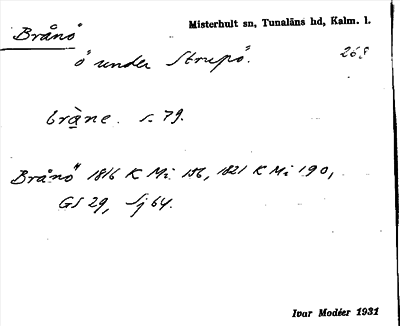 Brånö
Misterhult sn, Tunaläns hd, Kalm. l.
ö under Strupö.
268
bràne. s. 79.
Brånö 1816 K Mi 186, 1821 K Mi 190,
GS 29, Sj 64.
Ivar Modéer 1931